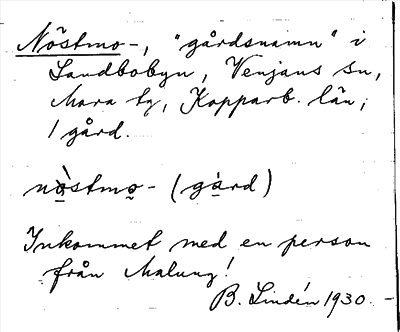 Nöstmo-, "gårdsnamn" i
Landbobyn, Venjans sn,
Mora tg, Kopparb. län;
1 gård.
nö̀stmo̠- (gård)
Inkommet med en person
från Malung!
B. Lindén 1930.